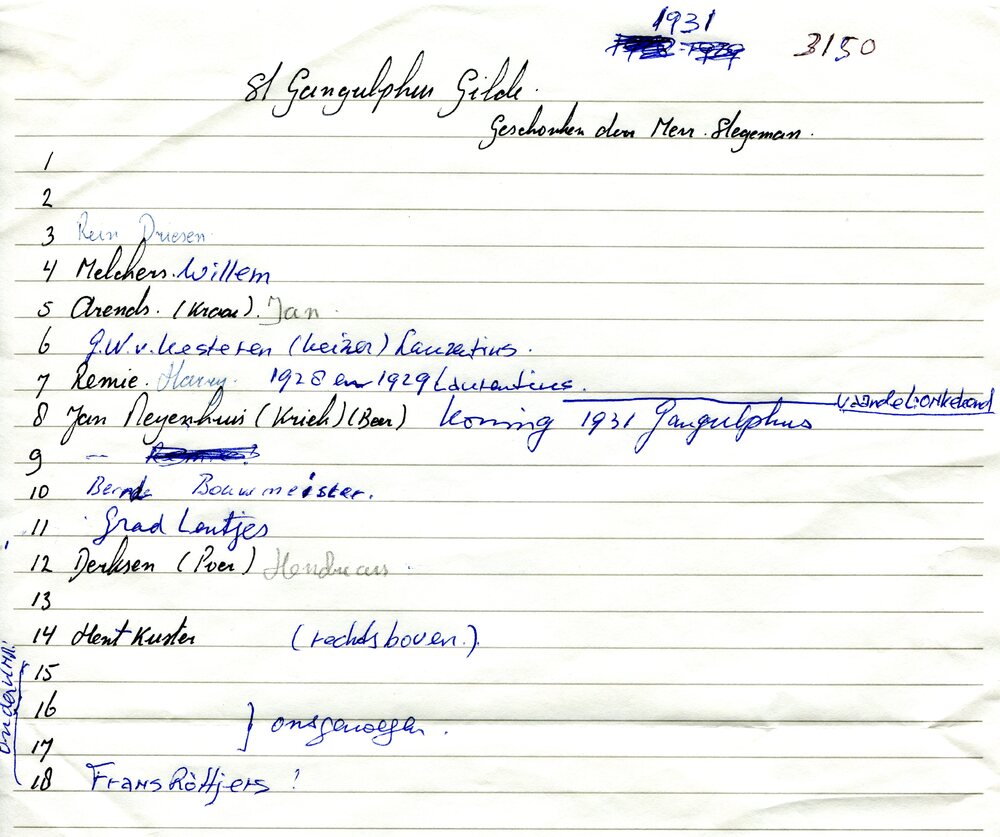 1931
3150
St Gangulphus Gilde.
Geschonken door Mevr. Stegeman.
1
2
3 Rein Driesen
4 Melchers. Willem
5 Arends. (Kraai). Jan.
6 G.W.v. Kesteren (keizer) Laurentius.
7 Remie. Harry. 1928 en 1929 Laurentius.
8 Jan Meyenhuis (Krieh) (Beer) koning 1931 Gangulphus
9 -
10 Bouwmeister.
11 Grad Lentjes
12 Derksen (Poer) Hendricus
13
14 Hent Kuster (rechtsboven.)
15
16
} onsgenoegen.
17
18 Frans Röttjers ?